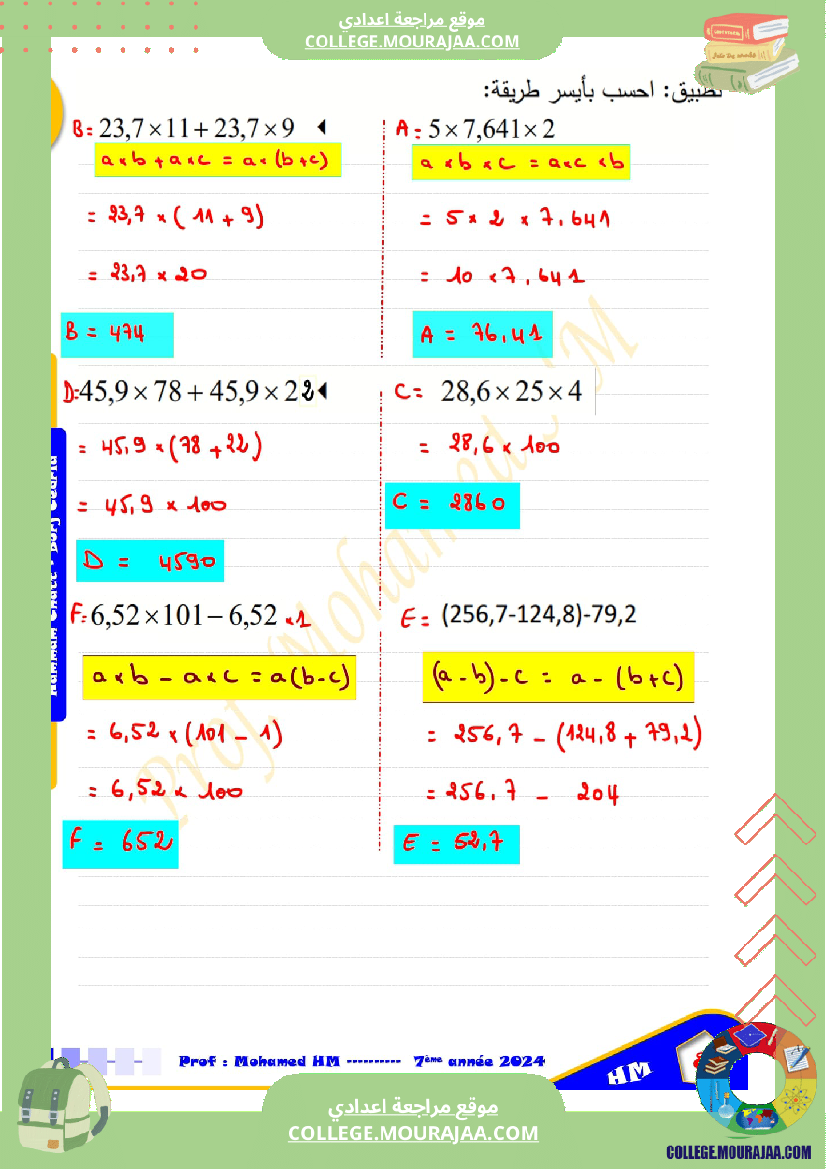 موقع مراجعة اعدادي
COLLEGE.MOURAJAA.COM
تطبيق: احسب بأيسر طريقة:
A = 5×7,641×2
a × b × c = a×c×b
= 5 × 2 × 7,641
= 10 × 7,641
A = 76,41
B = 23,7×11+23,7×9
a×b + a×c = a×(b+c)
= 23,7 × (11 + 9)
= 23,7 × 20
B = 474
C = 28,6×25×4
= 28,6 × 100
C = 2860
D = 45,9×78+45,9×22
= 45,9 × (78 + 22)
= 45,9 × 100
D = 4590
E = (256,7-124,8)-79,2
(a - b) - c = a - (b+c)
= 256,7 - (124,8 + 79,2)
= 256,7 - 204
E = 52,7
F = 6,52×101−6,52 ×1
a×b - a×c = a(b-c)
= 6,52 × (101 - 1)
= 6,52 × 100
F = 652
Prof. Mohamed HM
Prof : Mohamed HM ---------- 7ème année 2024
HM
موقع مراجعة اعدادي
COLLEGE.MOURAJAA.COM
COLLEGE.MOURAJAA.COM